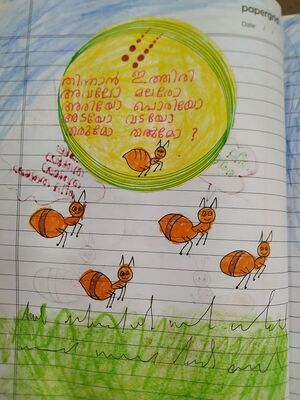 papergrid
Date:
തിന്നാൻ ഇത്തിരി
അവലോ മലരോ
അരിയോ പൊരിയോ
അടയോ വടയോ
തരുമോ തരുമോ ?